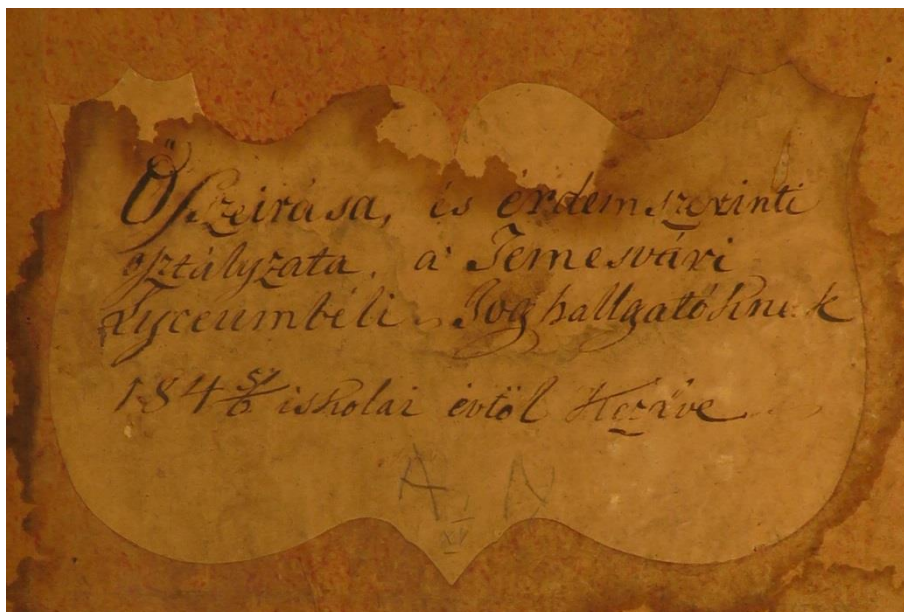 Öszeirása, és érdemszerinti
osztályzata, a' Temesvári
Lyceumbéli Joghallgatóknak
184 5/6 iskolai évtöl Kezdve
A N
XI